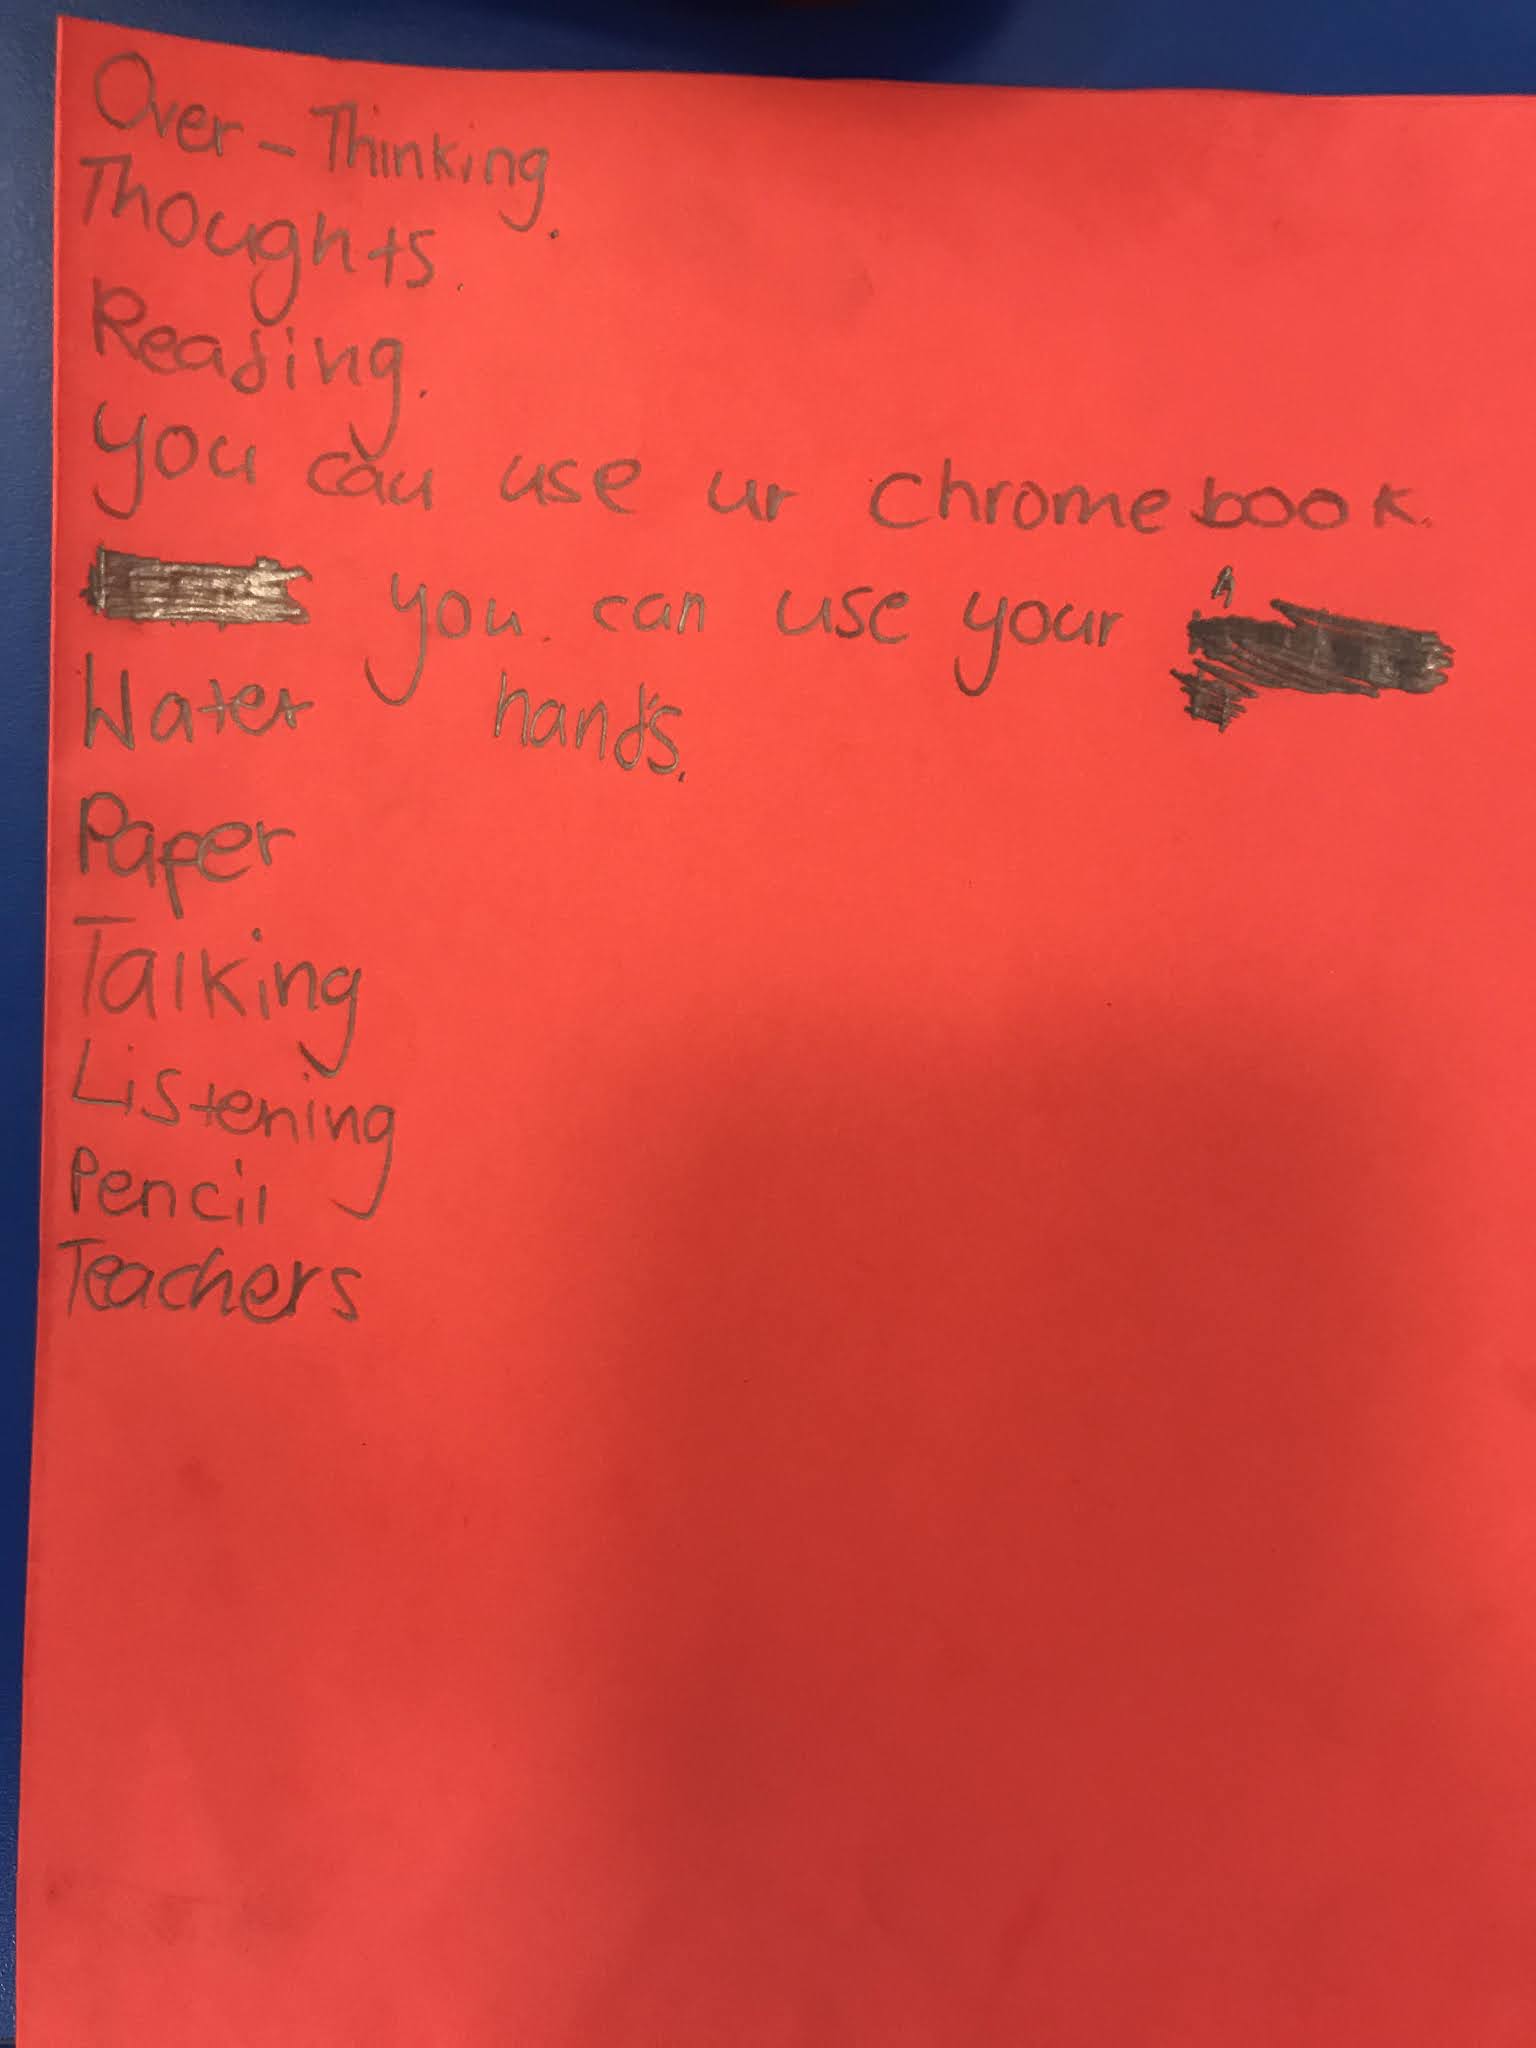 Over-Thinking.
Thoughts.
Reading.
you can use ur chromebook.
you can use your
Water hands.
Paper
Talking
Listening
Pencil
Teachers